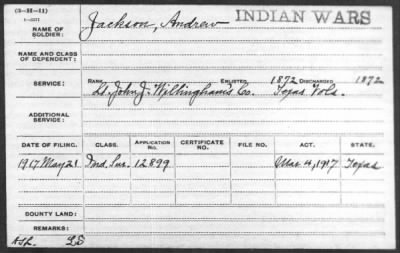 (3-32-11)
INDIAN WARS
NAME OF SOLDIER: Jackson, Andrew
NAME AND CLASS OF DEPENDENT:
SERVICE: RANK ENLISTED, 1872 DISCHARGED 1872
Lt. John J. Willingham's Co. Texas Vols.
ADDITIONAL SERVICE:
DATE OF FILING. CLASS. APPLICATION NO. CERTIFICATE NO. FILE NO. ACT. STATE.
1917 May 21 Ind. Sur. 12899 Mar 4, 1917 Texas
BOUNTY LAND:
REMARKS: